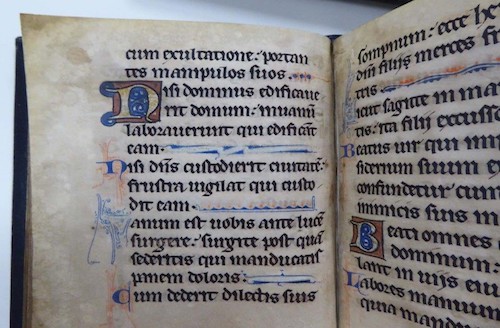 cum exultatione: portan
tes manipulos suos.
Nisi dominus edificaue
rit domum: inuanū
laborauerunt qui edificāt
eam.
Nisi dn̄s custodierit ciuitatē:
frustra uigilat qui custo
dit eam.
Uanum est uobis ante lucē
surgere: surgite post quā
sederitis qui manducatis
panem doloris.
Cum dederit dilectis suis
sompnum: ecce he
dn̄i filij merces fr
tris
icut sagitte in ma
tis: ita filij excuss
Beatus uir qui imp
siderium suum e
confundetur cum
inimicis suis in
Beati omnes
dominum:
lant in uijs ei
Labores manuum
quia mandu